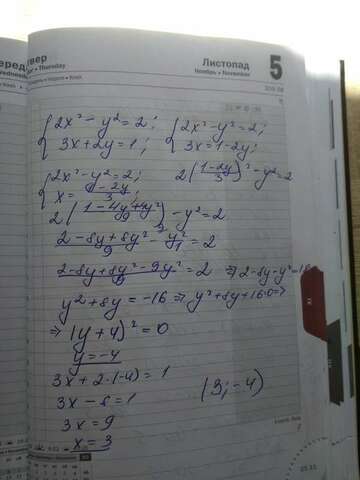 вер
Thursday
Листопад
Ноябрь • November
5
{2x² - y² = 2; {2x² - y² = 2;
3x + 2y = 1; 3x = 1 - 2y;
{2x² - y² = 2; 2((1-2y)/3)² - y² = 2
x = (1-2y)/3;
2((1-4y+4y²)/9) - y² = 2
(2-8y+8y²)/9 - y²/1 = 2
(2-8y+8y²-9y²)/9 = 2 ⇒ 2-8y-y²=18
y² + 8y = -16 ⇒ y²+8y+16=0 ⇒
⇒ (y+4)² = 0
y = -4
3x + 2·(-4) = 1
3x - 8 = 1 (3; -4)
3x = 9
x = 3
XI